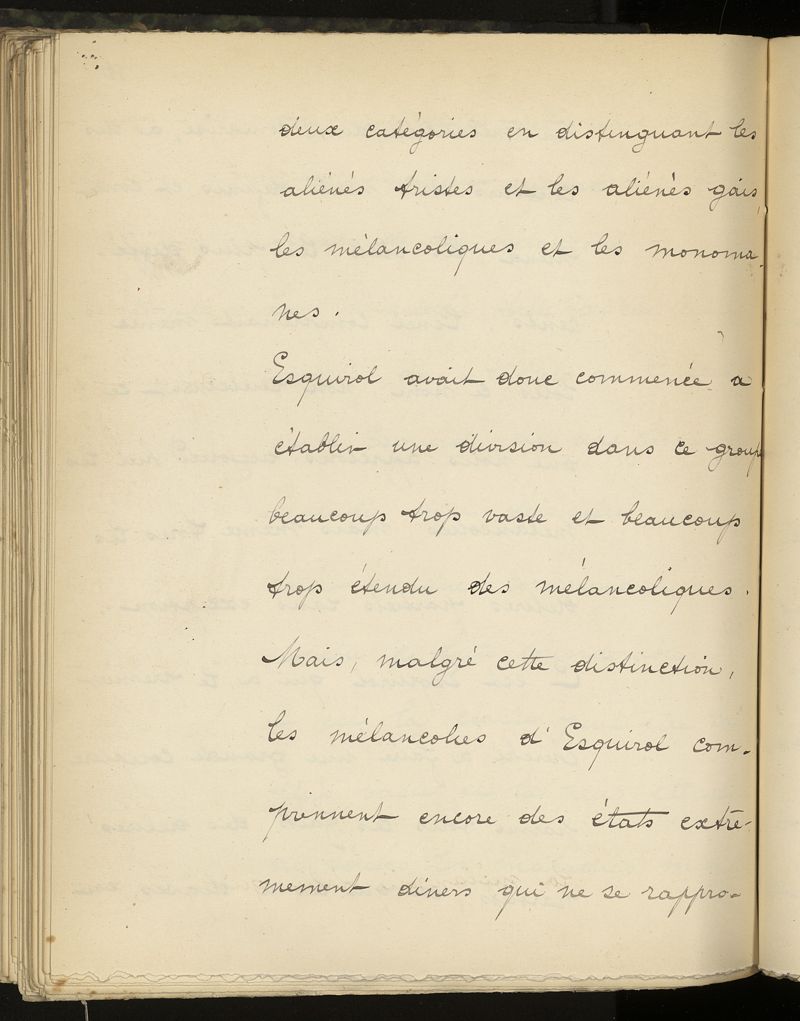 deux catégories en distinguant les
aliénés tristes et les aliénés gais,
les mélancoliques et les monoma-
nes.
Esquirol avait donc commencée à
établir une division dans ce groupe
beaucoup trop vaste et beaucoup
trop étendu des mélancoliques.
Mais, malgré cette distinction,
les mélancolies d'Esquirol com-
prennent encore des états extrê-
mement divers qui ne se rappro-